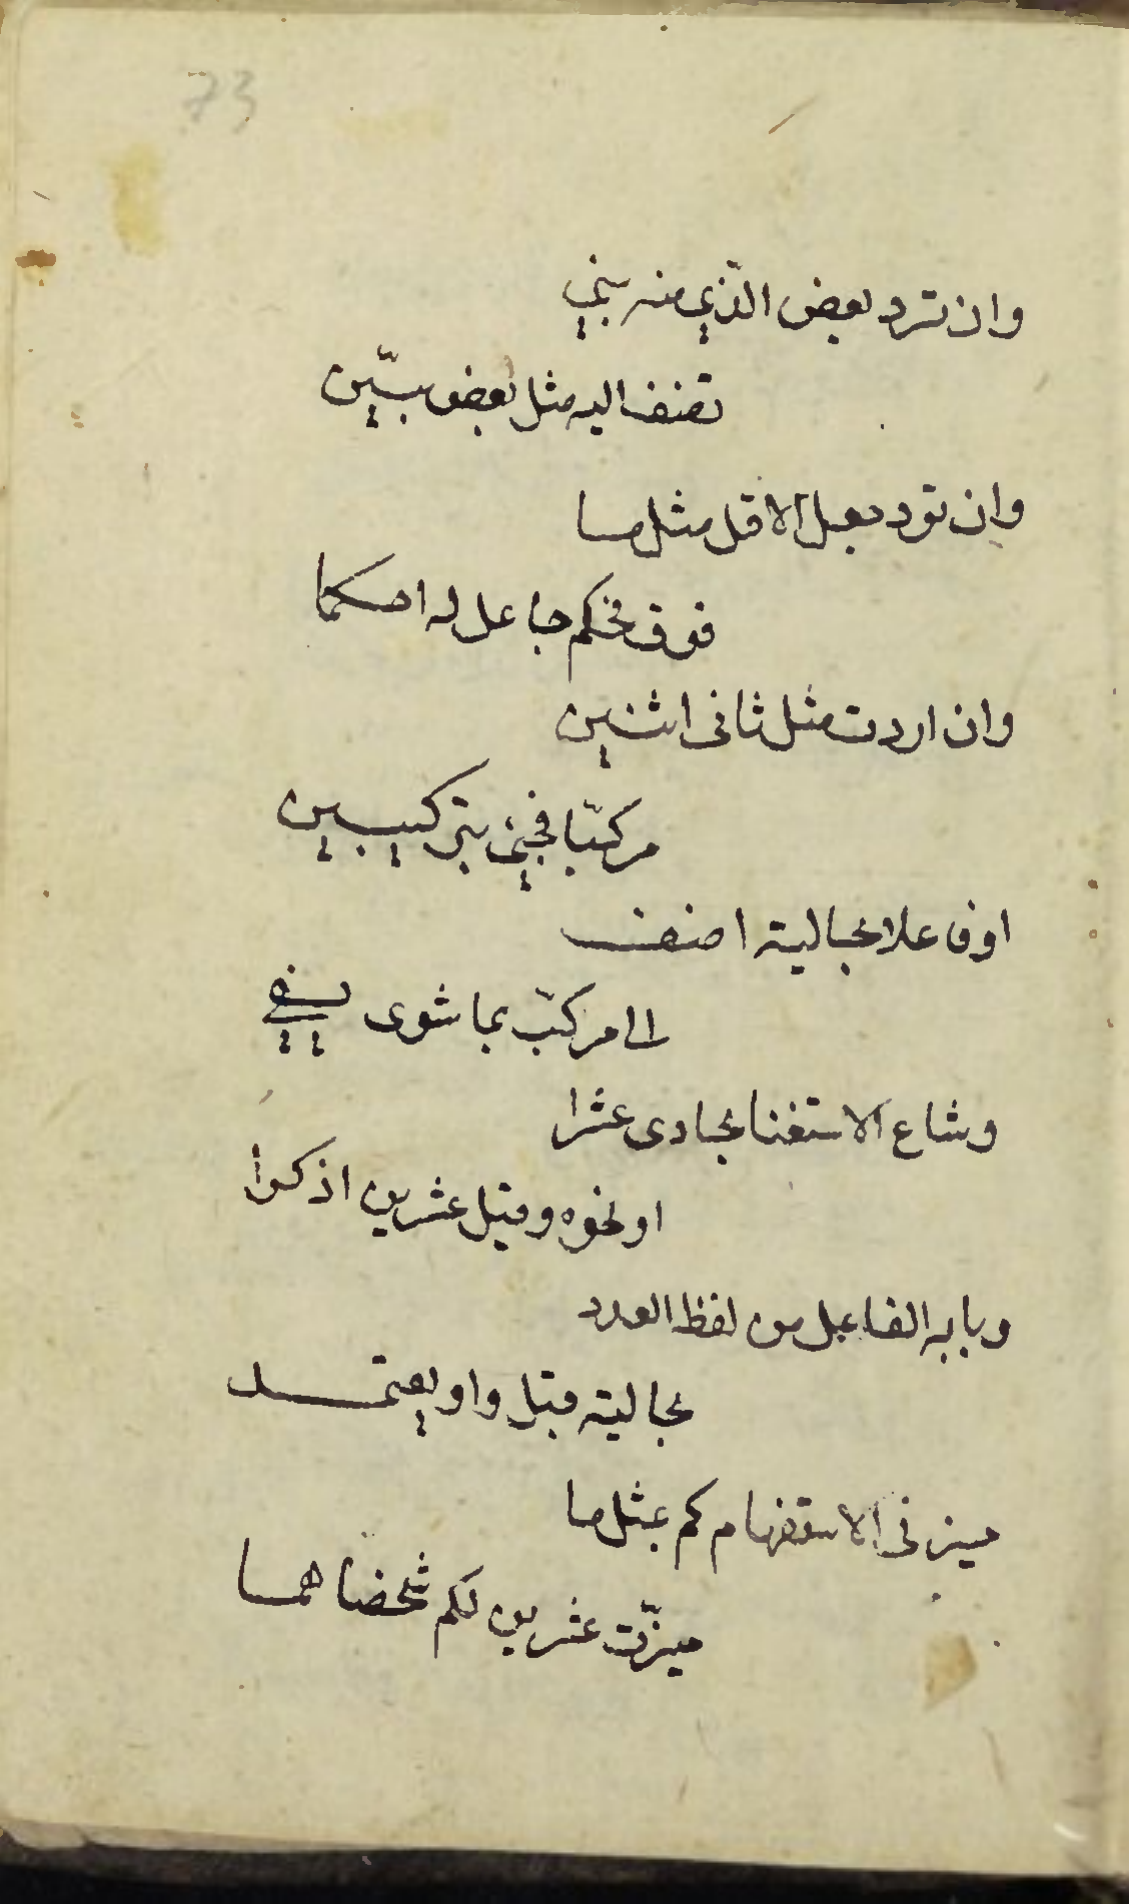 73
وان ترد بعض الّذي منه بني
تضف اليه مثل بعض بيّن
وان ترد جعل الاقل مثل ما
فوق فحكم جاعل له احكما
وان اردت مثل ثانى اثنين
مركّبا فجئ بتركيبين
او فاعلا بحاليته اضف
الى مركّب بما تنوى يفي
وشاع الاستغنا بحادى عشرا
او نحوه وقبل عشرين اذكرا
وبابه الفاعل من لفظ العدد
بحاليته قبل واو يعتمد
ميز فى الاستفهام كم بمثل ما
ميزّت عشرين لكم شخصا هما